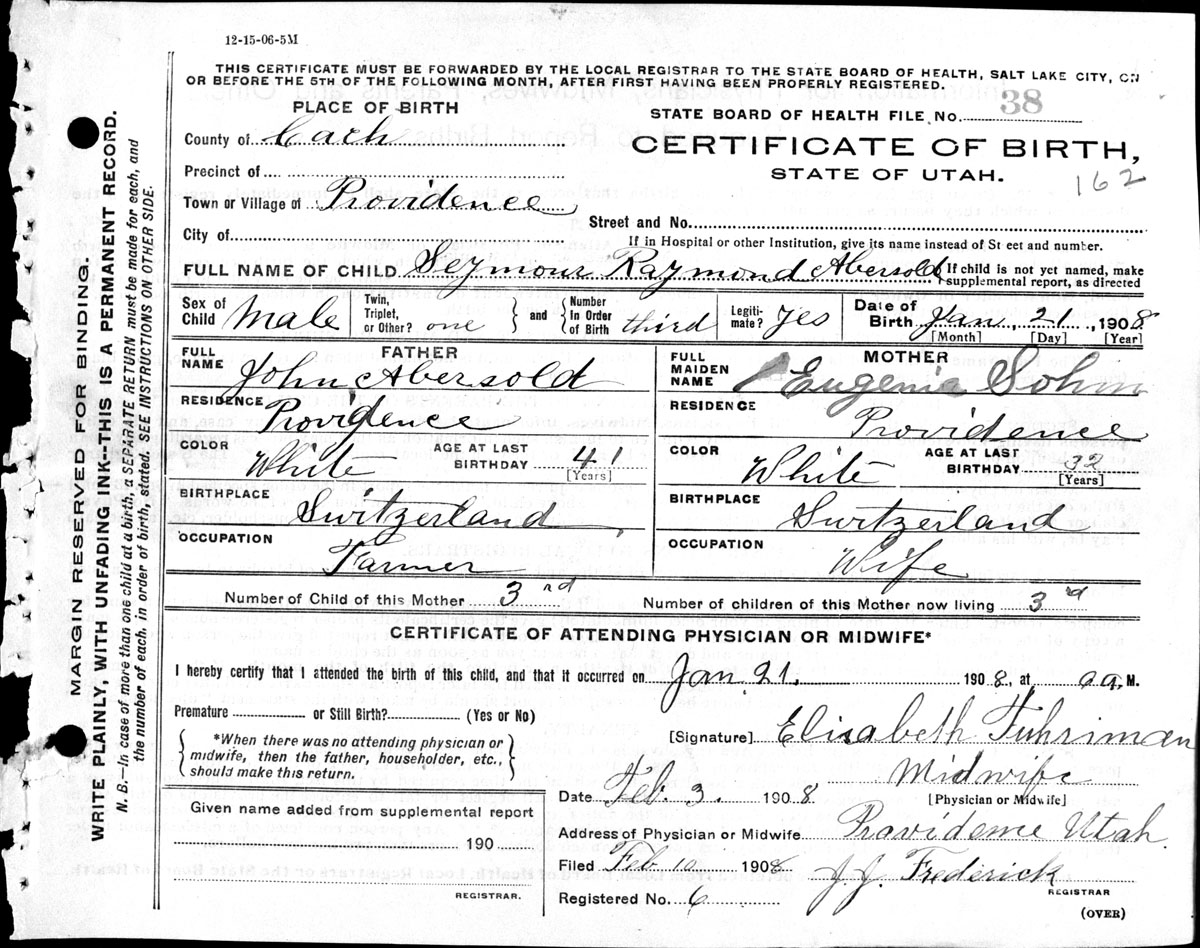 12-15-06-5M
THIS CERTIFICATE MUST BE FORWARDED BY THE LOCAL REGISTRAR TO THE STATE BOARD OF HEALTH, SALT LAKE CITY, ON
OR BEFORE THE 5TH OF THE FOLLOWING MONTH, AFTER FIRST HAVING BEEN PROPERLY REGISTERED.
PLACE OF BIRTH
STATE BOARD OF HEALTH FILE No. 38
County of Cach
CERTIFICATE OF BIRTH,
STATE OF UTAH.
162
Precinct of
Town or Village of Providence
Street and No.
City of
If in Hospital or other Institution, give its name instead of Street and number.
FULL NAME OF CHILD Seymour Raymond Abersold
If child is not yet named, make
supplemental report, as directed
Sex of Child Male Twin, Triplet, or Other? one and Number In Order of Birth third Legiti-mate? Yes Date of Birth Jan. 21, 1908
[Month] [Day] [Year]
FATHER
FULL NAME John Abersold
RESIDENCE Providence
COLOR White AGE AT LAST BIRTHDAY 41
[Years]
BIRTHPLACE Switzerland
OCCUPATION Farmer
MOTHER
FULL MAIDEN NAME Eugenie Sohm
RESIDENCE Providence
COLOR White AGE AT LAST BIRTHDAY 32
[Years]
BIRTHPLACE Switzerland
OCCUPATION Wife
Number of Child of this Mother 3rd
Number of children of this Mother now living 3rd
CERTIFICATE OF ATTENDING PHYSICIAN OR MIDWIFE*
I hereby certify that I attended the birth of this child, and that it occurred on Jan 21. 1908, at M.
Premature or Still Birth? (Yes or No)
[Signature] Elisabeth Fuhriman
*When there was no attending physician or
midwife, then the father, householder, etc.,
should make this return.
Midwife
[Physician or Midwife]
Date Feb. 3. 1908
Given name added from supplemental report
190
REGISTRAR.
Address of Physician or Midwife Providence Utah.
Filed Feb 10 1908
J. J. Frederick
REGISTRAR
Registered No. 6
(OVER)
MARGIN RESERVED FOR BINDING.
WRITE PLAINLY, WITH UNFADING INK--THIS IS A PERMANENT RECORD.
N. B.--In case of more than one child at a birth, a SEPARATE RETURN must be made for each, and
the number of each, in order of birth, stated. SEE INSTRUCTIONS ON OTHER SIDE.